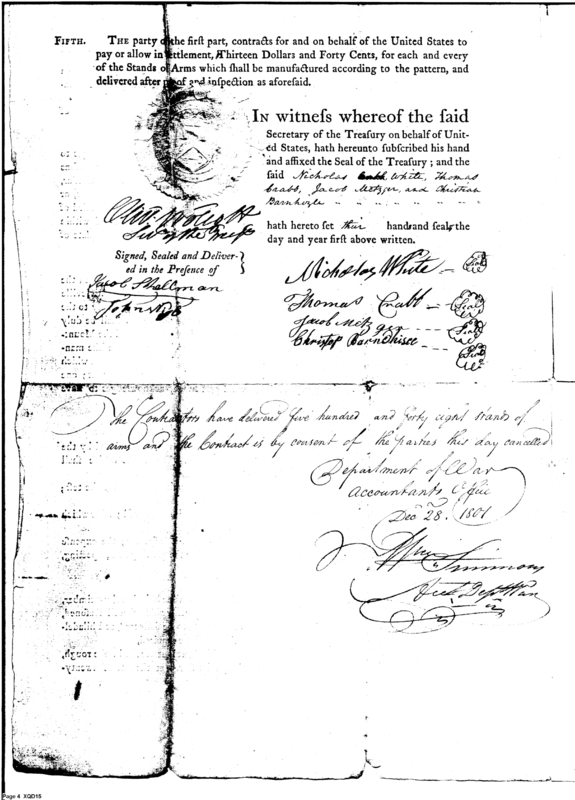 FIFTH. THE party of the firſt part, contracts for and on behalf of the United States to
pay or allow in ſettlement, Thirteen Dollars and Forty Cents, for each and every
of the Stands of Arms which ſhall be manufactured according to the pattern, and
delivered after proof and inſpection as aforeſaid.
IN witneſs whereof the ſaid
Secretary of the Treaſury on behalf of Unit-
ed States, hath hereunto ſubſcribed his hand
and affixed the Seal of the Treaſury; and the
ſaid Nicholas White, Thomas
Crabb, Jacob Metzger, and Christian
Barnhizle " " " " "
Oliv. Wolcott
Secy of the Treasy
hath hereto ſet their hands and ſeals the
day and year firſt above written.
Signed, Sealed and Deliver-
ed in the Preſence of
Nicholas White Seal
Jacob Shellman
Thomas Crabb Seal
John
Jacob Metzger Seal
Christof Barnhisel Seal
The Contractors have delivered five hundred and forty eight stands of
arms and the Contract is by consent of the parties this day cancelled
Department of War
Accountants Office
Decr 28. 1801
Wm Simmons
Acct Dept War
Page 4 XQD15